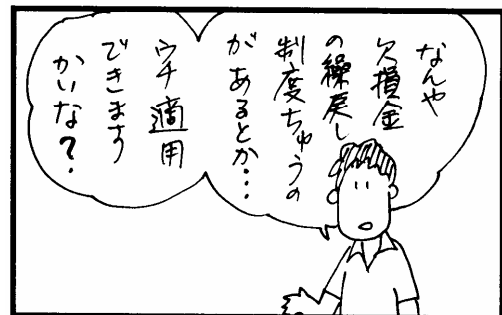 なんや
欠損金
の繰戻し
制度ちゅうの
があるとか…
ウチ適用
できます
かいな？